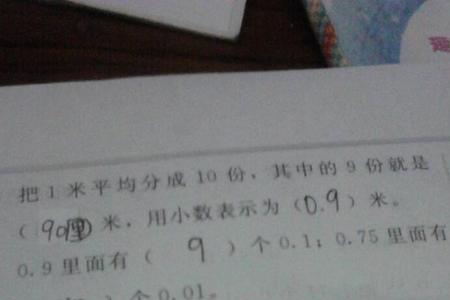 把1米平均分成10份，其中的9份就是
（90厘）米，用小数表示为（0.9）米。
0.9里面有（ 9 ）个0.1；0.75里面有
）个0.01。